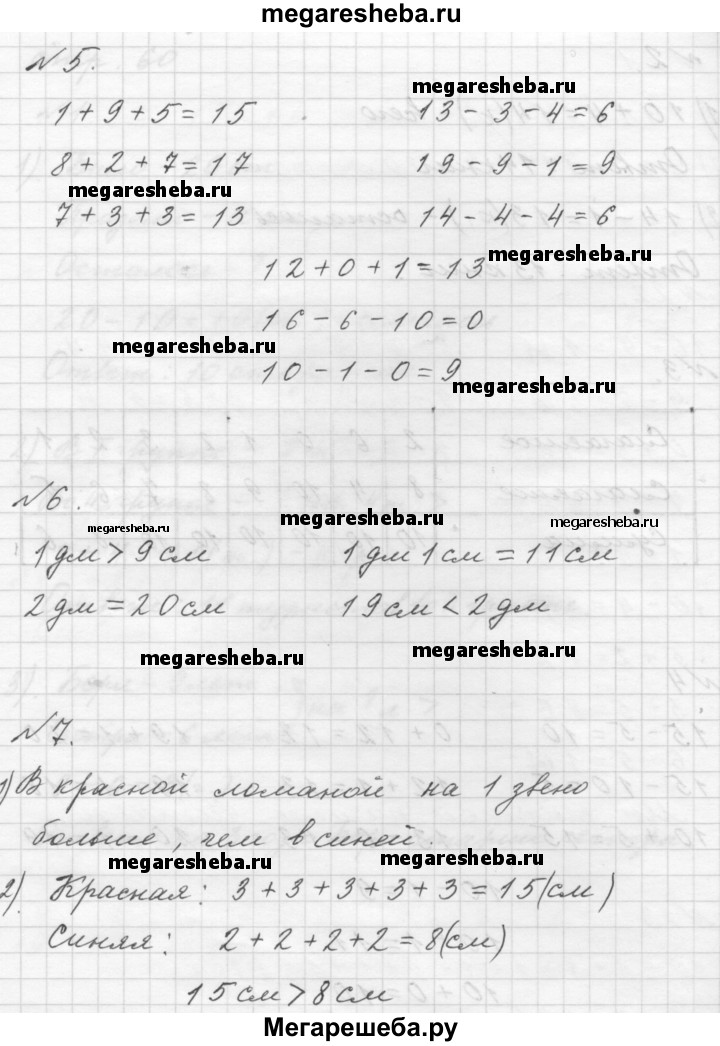 megaresheba.ru
№5.
1 + 9 + 5 = 15 13 - 3 - 4 = 6
megaresheba.ru
8 + 2 + 7 = 17 19 - 9 - 1 = 9
megaresheba.ru
7 + 3 + 3 = 13 14 - 4 - 4 = 6
megaresheba.ru
12 + 0 + 1 = 13
16 - 6 - 10 = 0
megaresheba.ru
10 - 1 - 0 = 9
megaresheba.ru
№6.
megaresheba.ru megaresheba.ru megaresheba.ru
1 дм > 9 см 1 дм 1 см = 11 см
2 дм = 20 см 19 см < 2 дм
megaresheba.ru megaresheba.ru
№7.
1) В красной ломаной на 1 звено
больше, чем в синей.
megaresheba.ru megaresheba.ru
2). Красная: 3 + 3 + 3 + 3 + 3 = 15 (см)
Синяя: 2 + 2 + 2 + 2 = 8 (см)
15 см > 8 см
Мегарешеба.ру